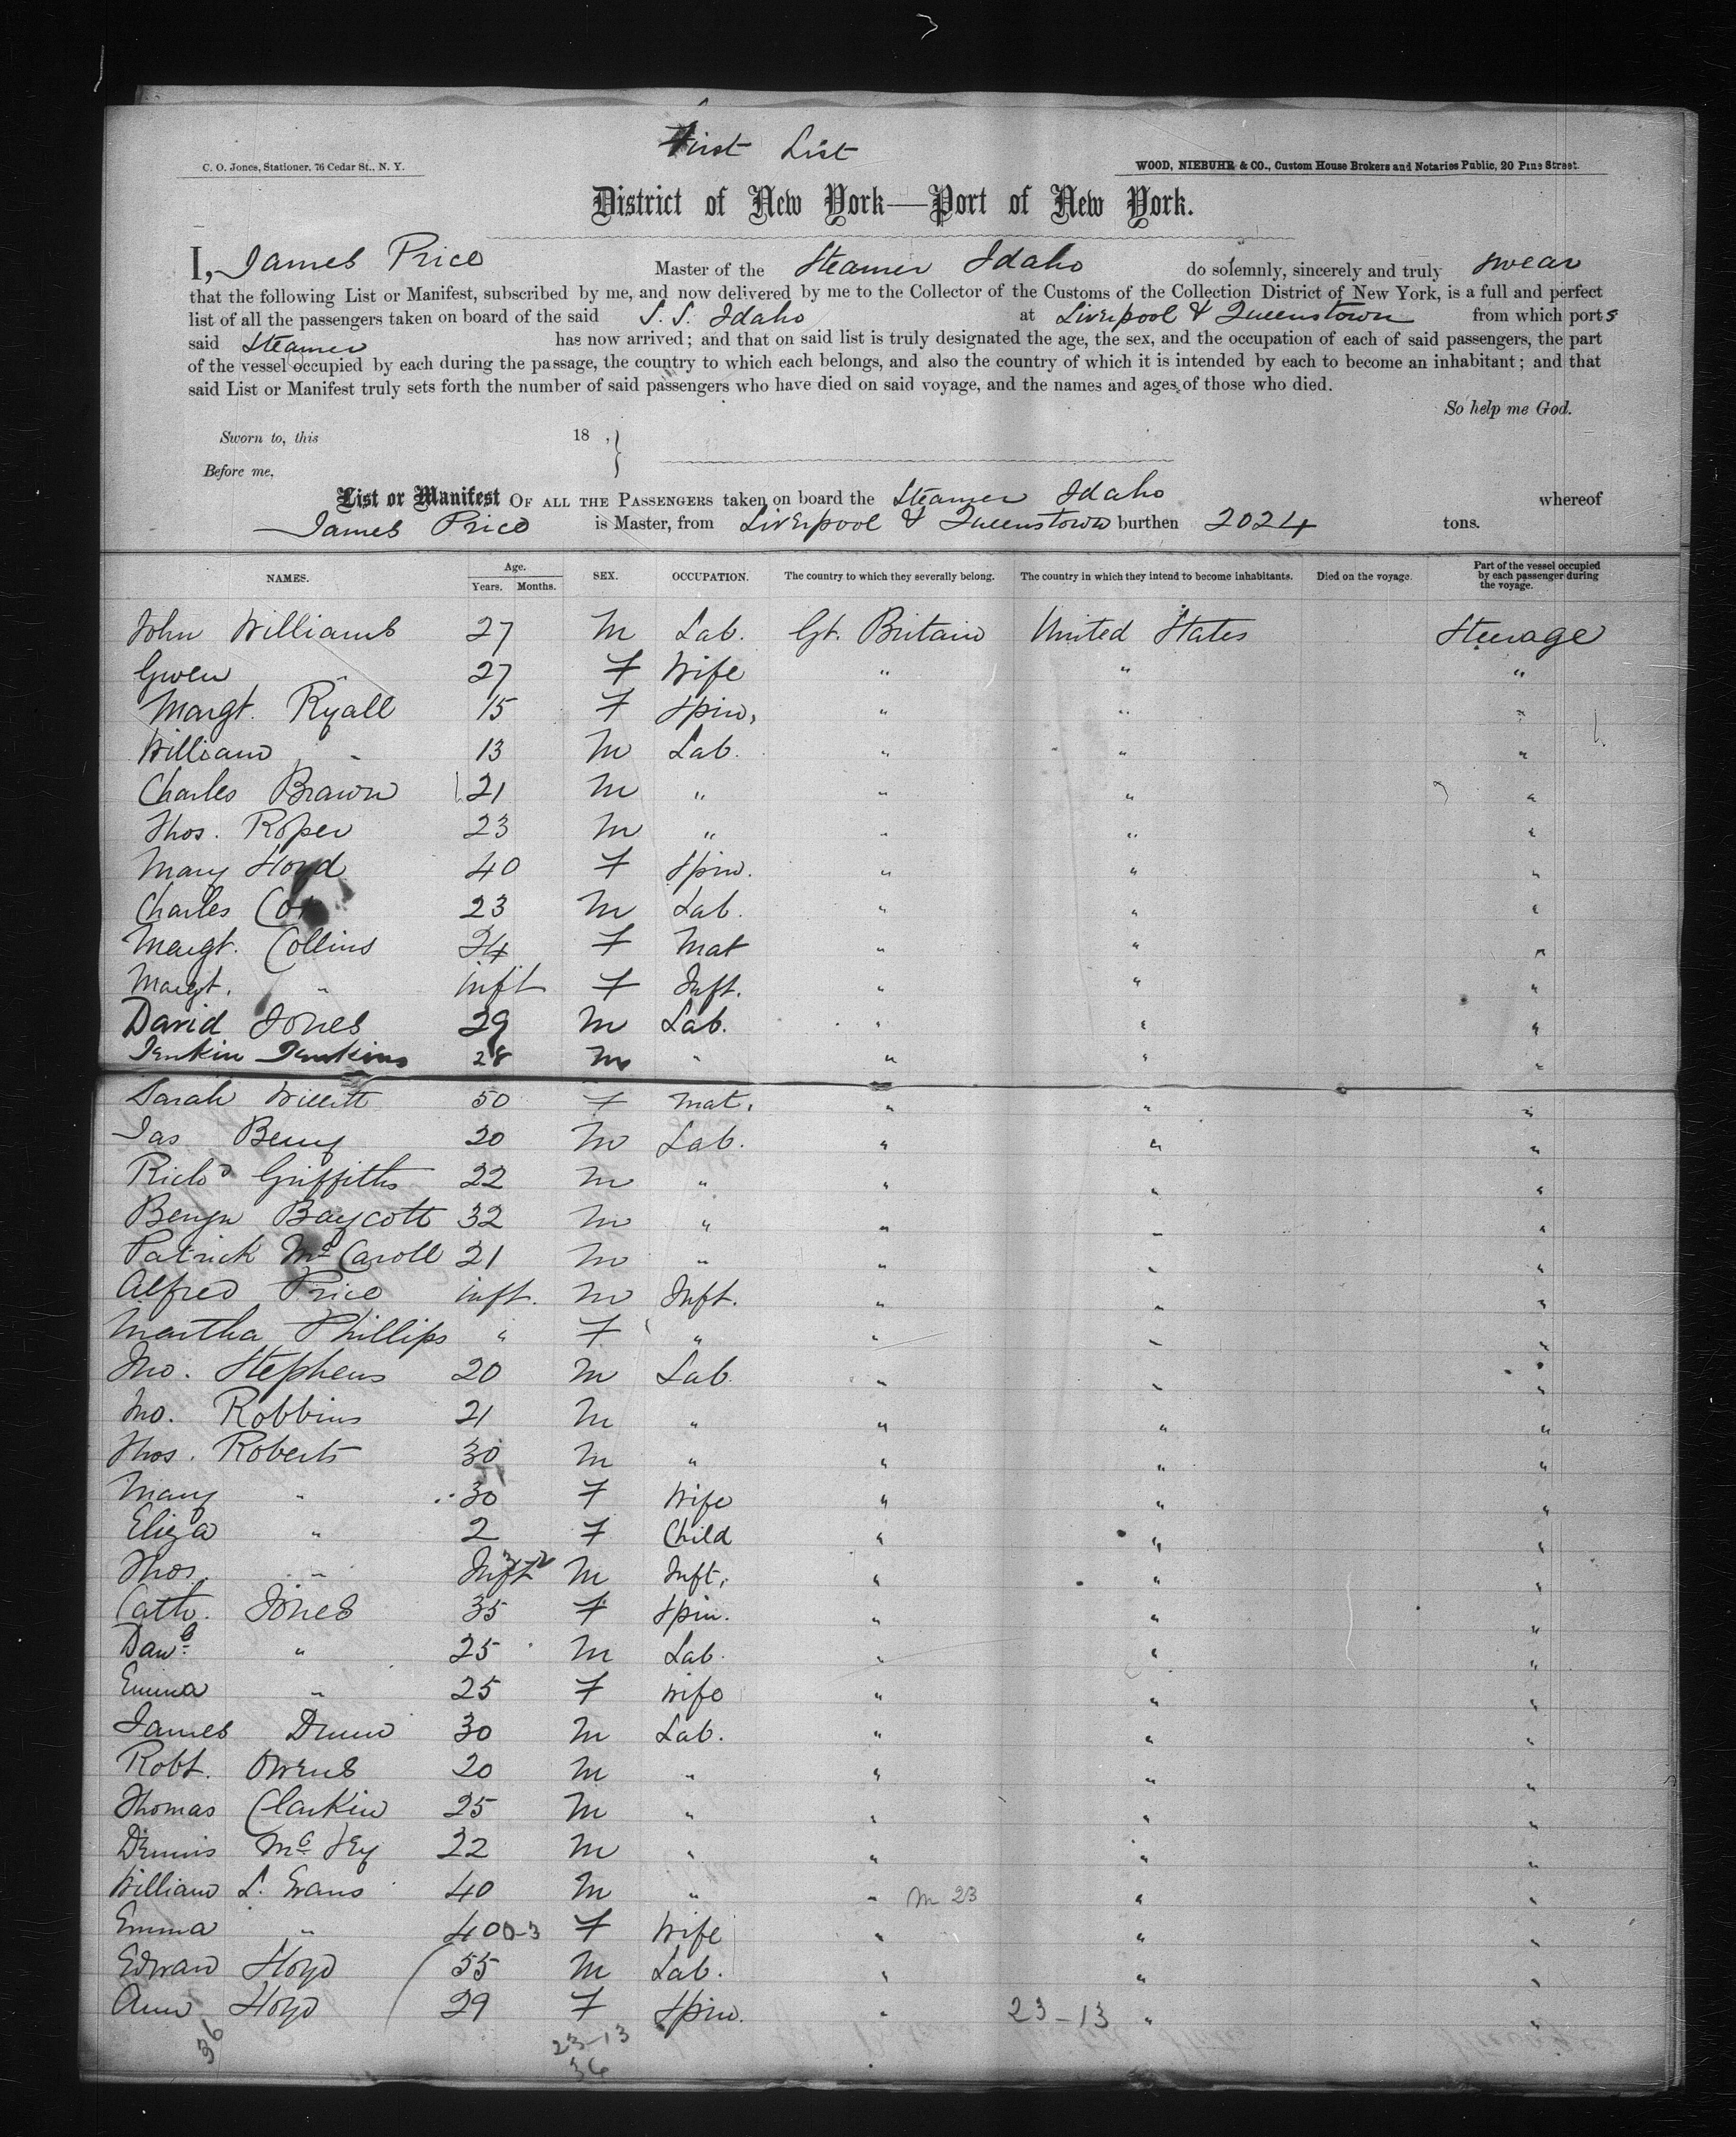 First List
C. O. Jones, Stationer, 76 Cedar St., N. Y.
WOOD, NIEBUHR & CO., Custom House Brokers and Notaries Public, 20 Pine Street.
District of New York—Port of New York.
I, James Price Master of the Steamer Idaho do solemnly, sincerely and truly swear
that the following List or Manifest, subscribed by me, and now delivered by me to the Collector of the Customs of the Collection District of New York, is a full and perfect
list of all the passengers taken on board of the said S. S. Idaho at Liverpool & Queenstown from which ports
said Steamer has now arrived; and that on said list is truly designated the age, the sex, and the occupation of each of said passengers, the part
of the vessel occupied by each during the passage, the country to which each belongs, and also the country of which it is intended by each to become an inhabitant; and that
said List or Manifest truly sets forth the number of said passengers who have died on said voyage, and the names and ages of those who died.
So help me God.
Sworn to, this 18 ,
Before me,
List or Manifest OF ALL THE PASSENGERS taken on board the Steamer Idaho whereof
James Price is Master, from Liverpool & Queenstown burthen 2024 tons.
NAMES. Age. Years. Months. SEX. OCCUPATION. The country to which they severally belong. The country in which they intend to become inhabitants. Died on the voyage. Part of the vessel occupied by each passenger during the voyage.
John Williams 27 M Lab. Gt. Britain United States Steerage
Gwen " 27 F Wife " " "
Margt. Ryall 15 F Spin. " " "
William " 13 M Lab. " " "
Charles Brawn 21 M " " " "
Thos. Roper 23 M " " " "
Mary 40 F Spin. " " "
Charles Cox 23 M Lab. " " "
Margt. Collins 24 F Mat " " "
Margt. " inft F Inft. " " "
David Jones 29 M Lab. " " "
Jenkin Jenkins 28 M " " " "
Sarah Willett 50 F Mat. " " "
Jas Berry 20 M Lab. " " "
Richd Griffiths 22 M " " " "
Benjn Baycott 32 M " " " "
Patrick McCaroll 21 M " " " "
Alfred Price inft. M Inft. " " "
Martha Phillips " F " " " "
Jno. Stephens 20 M Lab. " " "
Jno. Robbins 21 M " " " "
Thos. Roberts 30 M " " " "
Mary " 30 F Wife " " "
Eliza " 2 F Child " " "
Thos. " Inft M Inft. " " "
Cath. Jones 35 F Spin. " " "
" 25 M Lab. " " "
Emma " 25 F Wife " " "
James 30 M Lab. " " "
Robt. Owens 20 M " " " "
Thomas Clarkin 25 M " " " "
Dennis Mc 22 M " " " "
William L. Evans 40 M " " M 23 " "
Emma " 40 0-3 F Wife " " "
Edward Lloyd 55 M Lab. " " "
Ann Lloyd 29 F Spin. " 23-13 " "
36 23-13
36